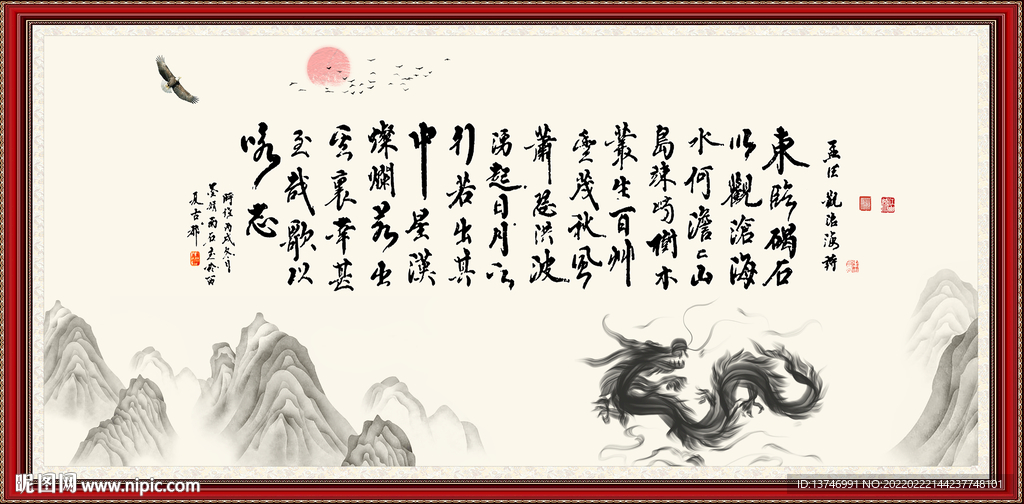 孟德 觀滄海 詩
東臨碣石
以觀滄海
水何澹々山
島竦峙樹木
叢生百艸
豐茂秋風
蕭瑟洪波
湧起日月之
行若出其
中星漢
燦爛若出
其裏幸甚
至哉歌以
詠志
丙戌冬月
昵图网 www.nipic.com
ID:13746991 NO:20220222144237748101